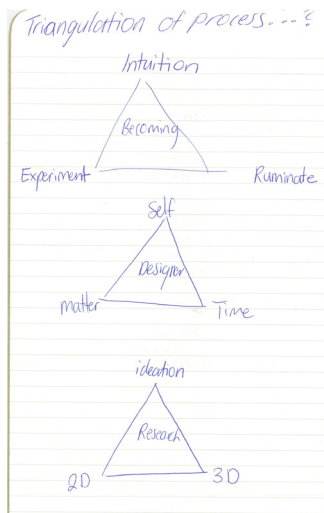 Triangulation of process....?
Intuition
Becoming
Experiment Ruminate
Self
Designer
matter Time
ideation
Research
2D 3D